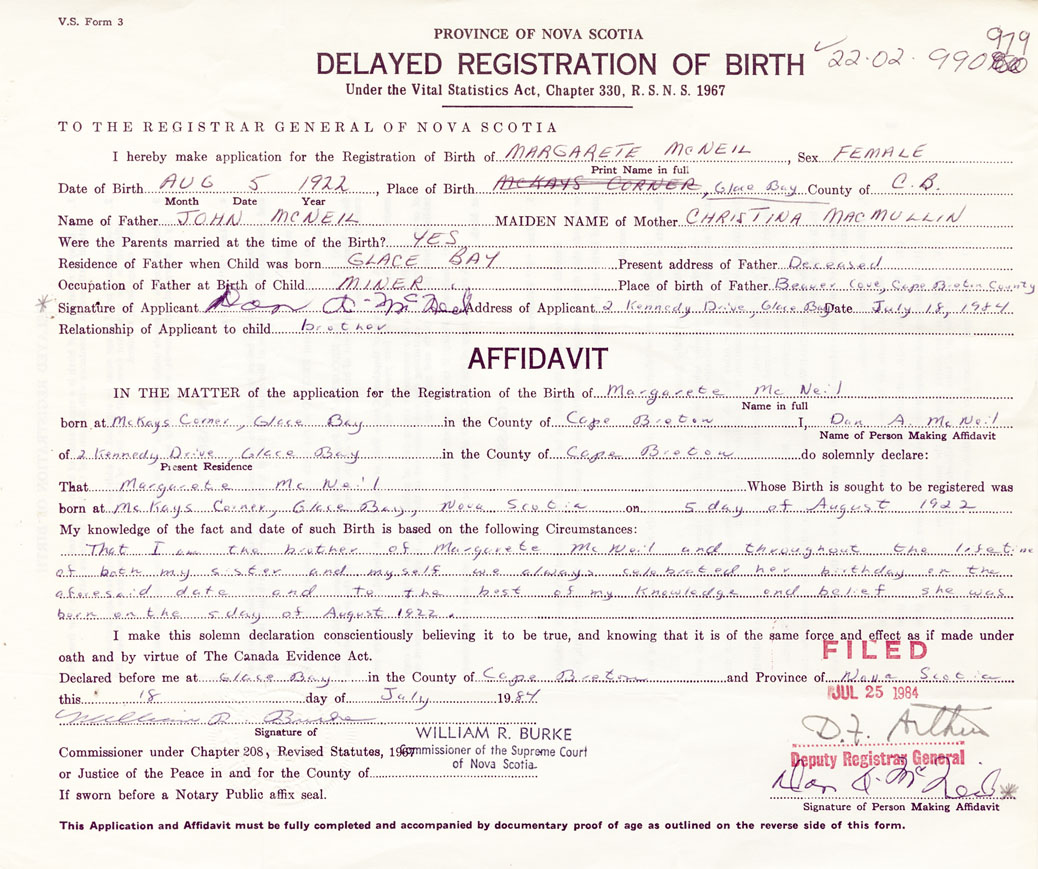 V.S. Form 3
PROVINCE OF NOVA SCOTIA
979
DELAYED REGISTRATION OF BIRTH
22·02· 990
Under the Vital Statistics Act, Chapter 330, R. S. N. S. 1967
TO THE REGISTRAR GENERAL OF NOVA SCOTIA
I hereby make application for the Registration of Birth of MARGARETE McNEIL, Sex FEMALE
Print Name in full
Date of Birth AUG 5 1922, Place of Birth McKAYS CORNER, Glace Bay County of C.B.
Month Date Year
Name of Father JOHN McNEIL MAIDEN NAME of Mother CHRISTINA MACMULLIN
Were the Parents married at the time of the Birth? YES
Residence of Father when Child was born GLACE BAY Present address of Father Deceased
Occupation of Father at Birth of Child MINER Place of birth of Father Beaver Cove, Cape Breton County
Signature of Applicant Dan A. McNeil Address of Applicant 2 Kennedy Drive, Glace Bay Date July 18, 1984
Relationship of Applicant to child brother
AFFIDAVIT
IN THE MATTER of the application for the Registration of the Birth of Margarete McNeil
Name in full
born at McKays Corner, Glace Bay in the County of Cape Breton I, Dan A. McNeil
Name of Person Making Affidavit
of 2 Kennedy Drive, Glace Bay in the County of Cape Breton do solemnly declare:
Present Residence
That Margarete McNeil Whose Birth is sought to be registered was
born at McKays Corner, Glace Bay, Nova Scotia on 5 day of August 1922
My knowledge of the fact and date of such Birth is based on the following Circumstances:
That I am the brother of Margarete McNeil and throughout the lifetime
of both my sister and myself we always celebrated her birthday on the
aforesaid date and to the best of my knowledge and belief she was
born on the 5 day of August 1922.
I make this solemn declaration conscientiously believing it to be true, and knowing that it is of the same force and effect as if made under
oath and by virtue of The Canada Evidence Act.
FILED
Declared before me at Glace Bay in the County of Cape Breton and Province of Nova Scotia
this 18 day of July 1984
JUL 25 1984
William R. Burke
Signature of
WILLIAM R. BURKE
D.F. Arthur
Commissioner under Chapter 208, Revised Statutes, 1967
Commissioner of the Supreme Court
of Nova Scotia.
Deputy Registrar General
or Justice of the Peace in and for the County of
Dan A. McNeil
If sworn before a Notary Public affix seal.
Signature of Person Making Affidavit
This Application and Affidavit must be fully completed and accompanied by documentary proof of age as outlined on the reverse side of this form.